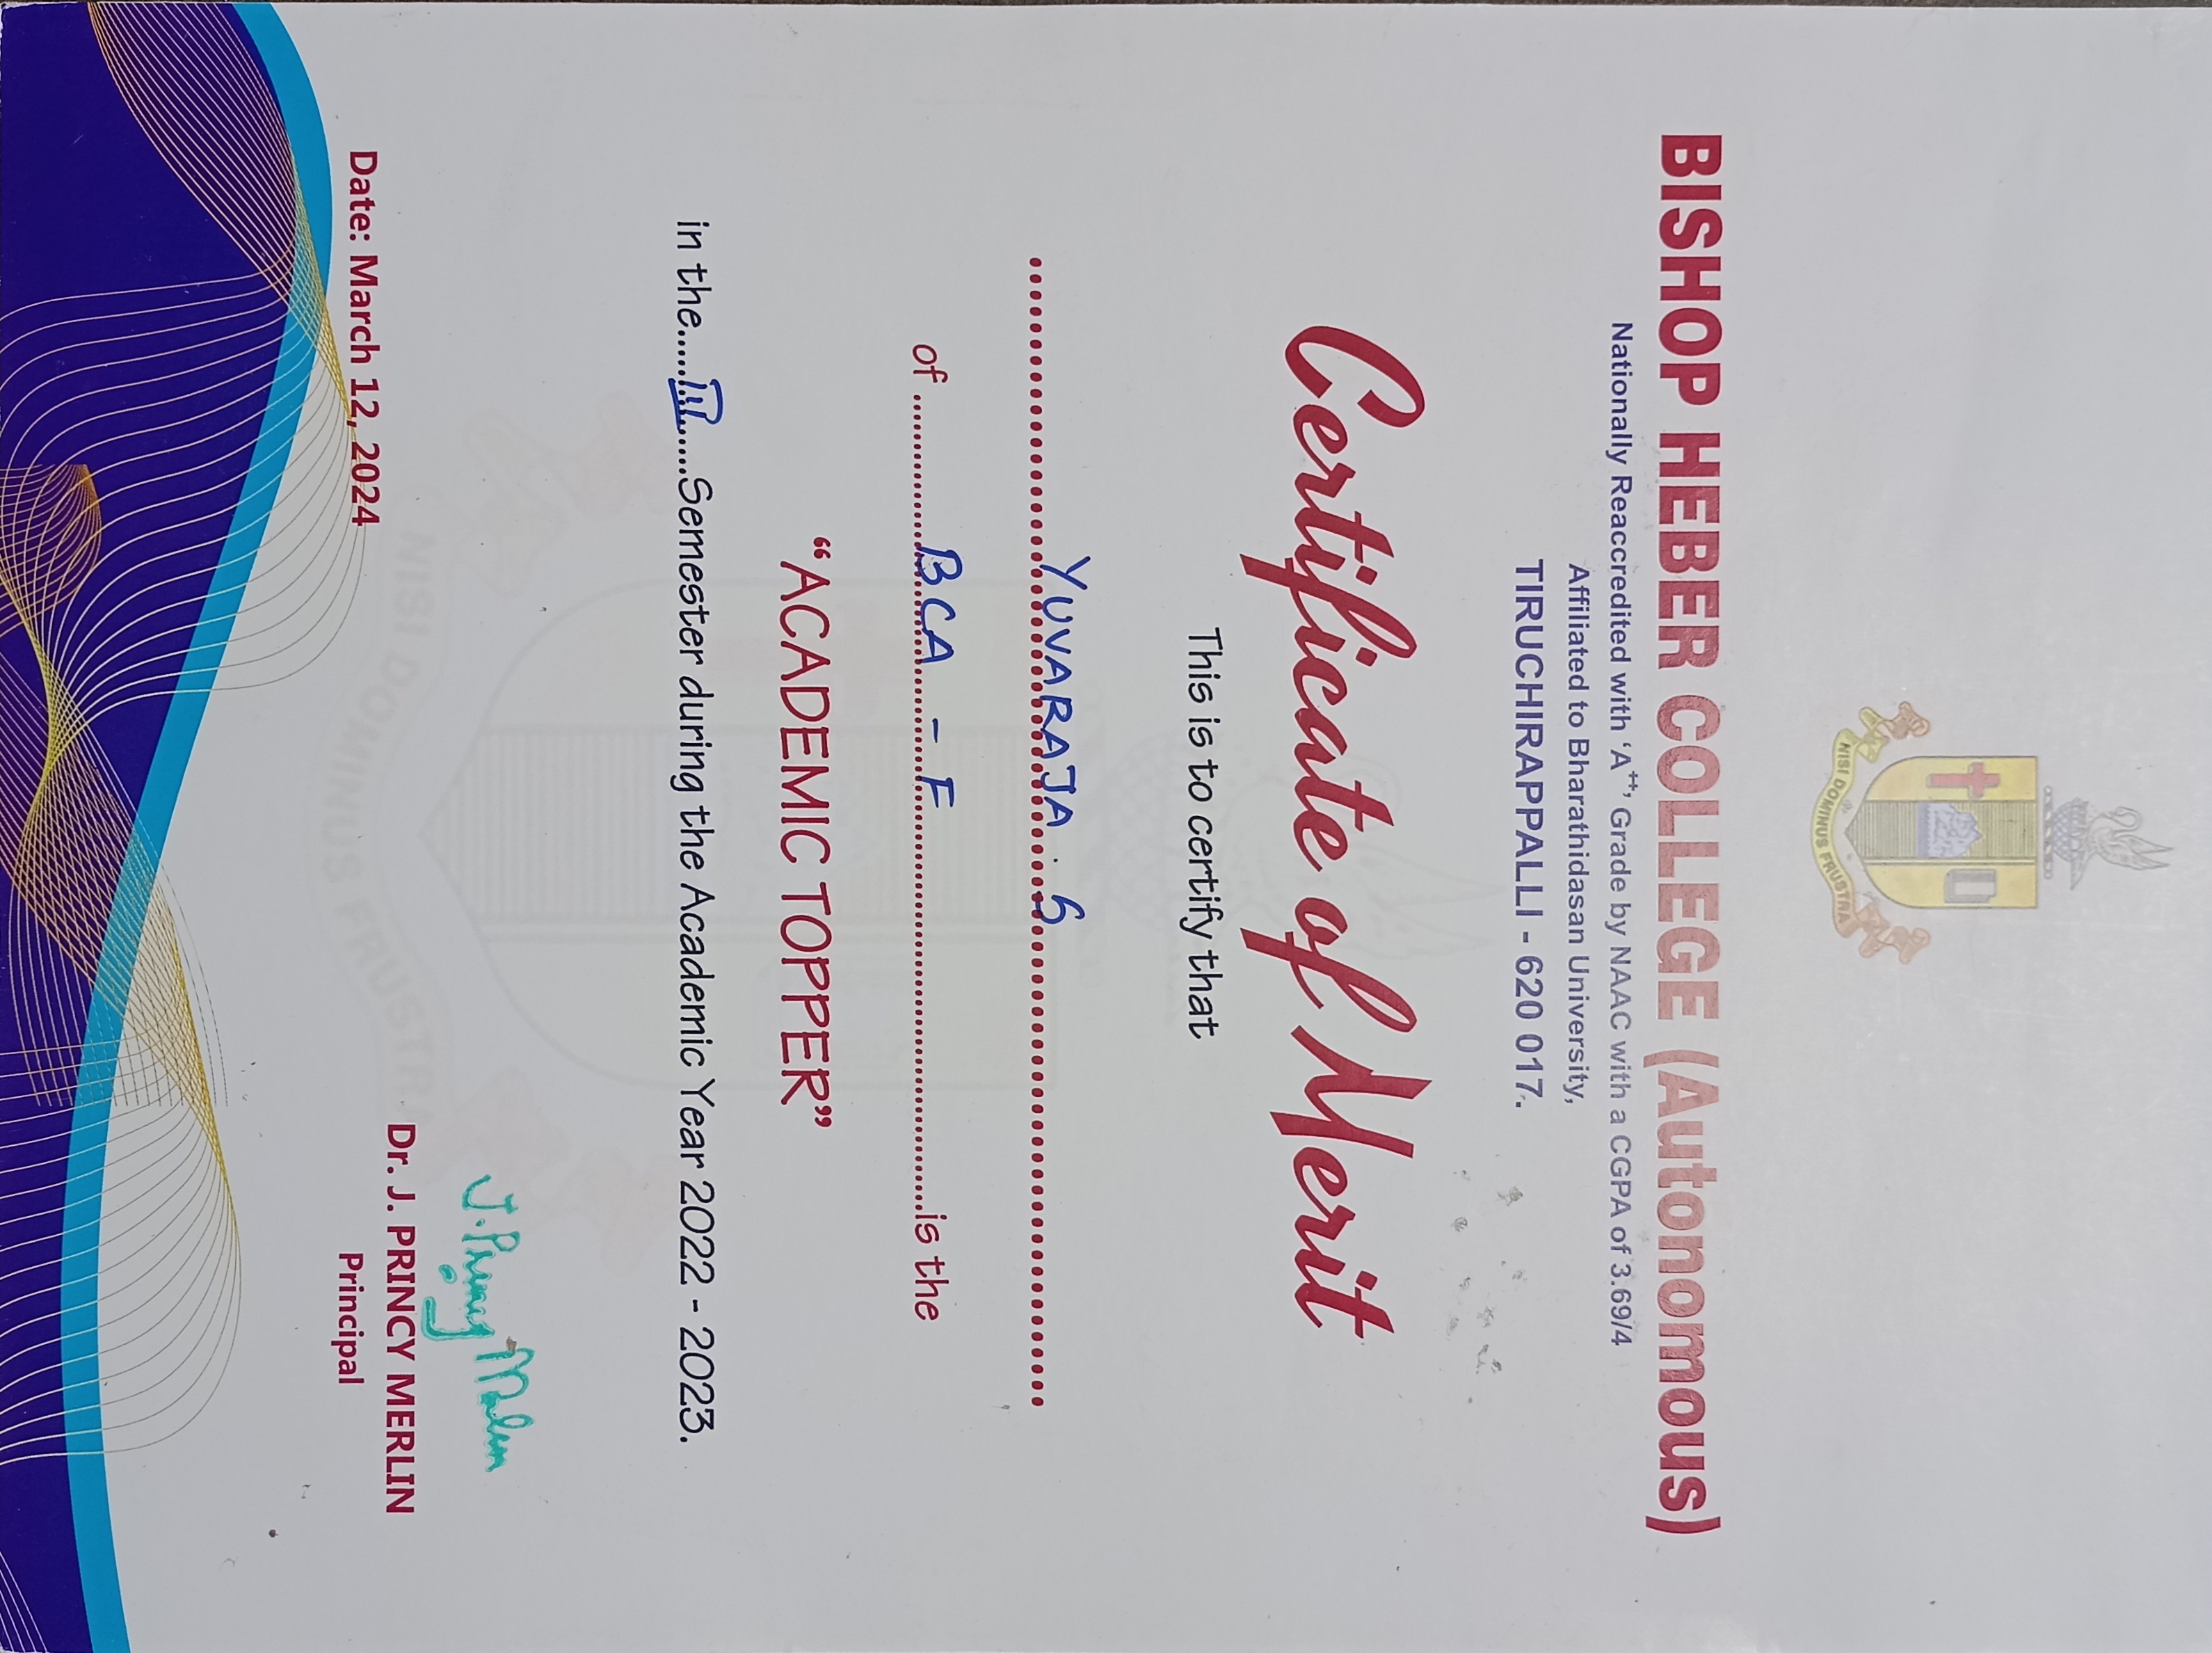 NISI DOMINUS FRUSTRA
BISHOP HEBER COLLEGE (Autonomous)
Nationally Reaccredited with ‘A++’ Grade by NAAC with a CGPA of 3.69/4
Affiliated to Bharathidasan University,
TIRUCHIRAPPALLI - 620 017.
Certificate of Merit
This is to certify that
YUVARAJA . S
of BCA - F is the
“ACADEMIC TOPPER”
in the III Semester during the Academic Year 2022 - 2023.
J. Princy Merlin
Dr. J. PRINCY MERLIN
Principal
Date: March 12, 2024
NISI DOMINUS FRUSTRA